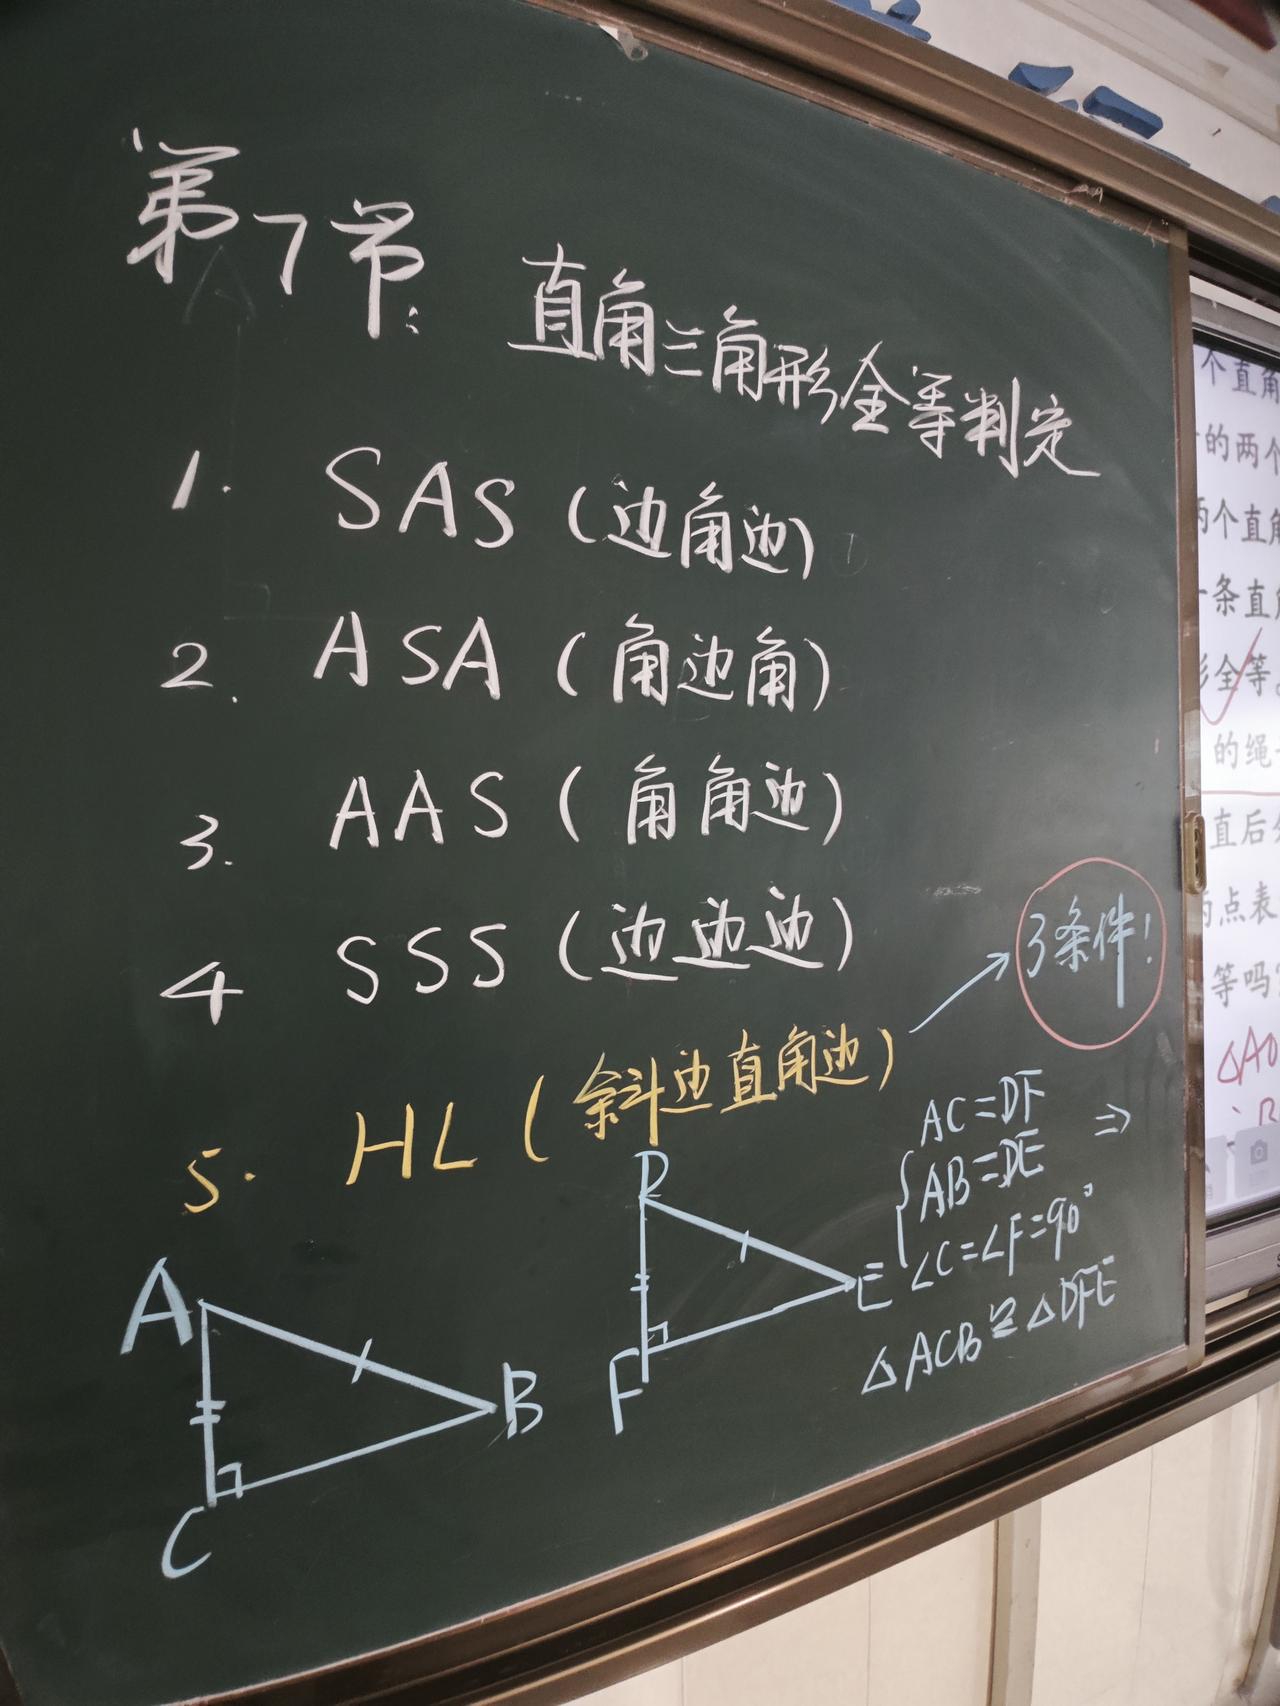 第7节: 直角三角形全等判定
1. SAS (边角边)
2. ASA (角边角)
3. AAS (角角边)
4 SSS (边边边)
5. HL (斜边直角边)
3条件!
AC=DF
AB=DE
∠C=∠F=90°
⇒
△ACB≌△DFE
A
B
C
D
E
F
个直角
的两个
两个直角
一条直角
形全等
的绳
直后
两点表
等吗
△AO